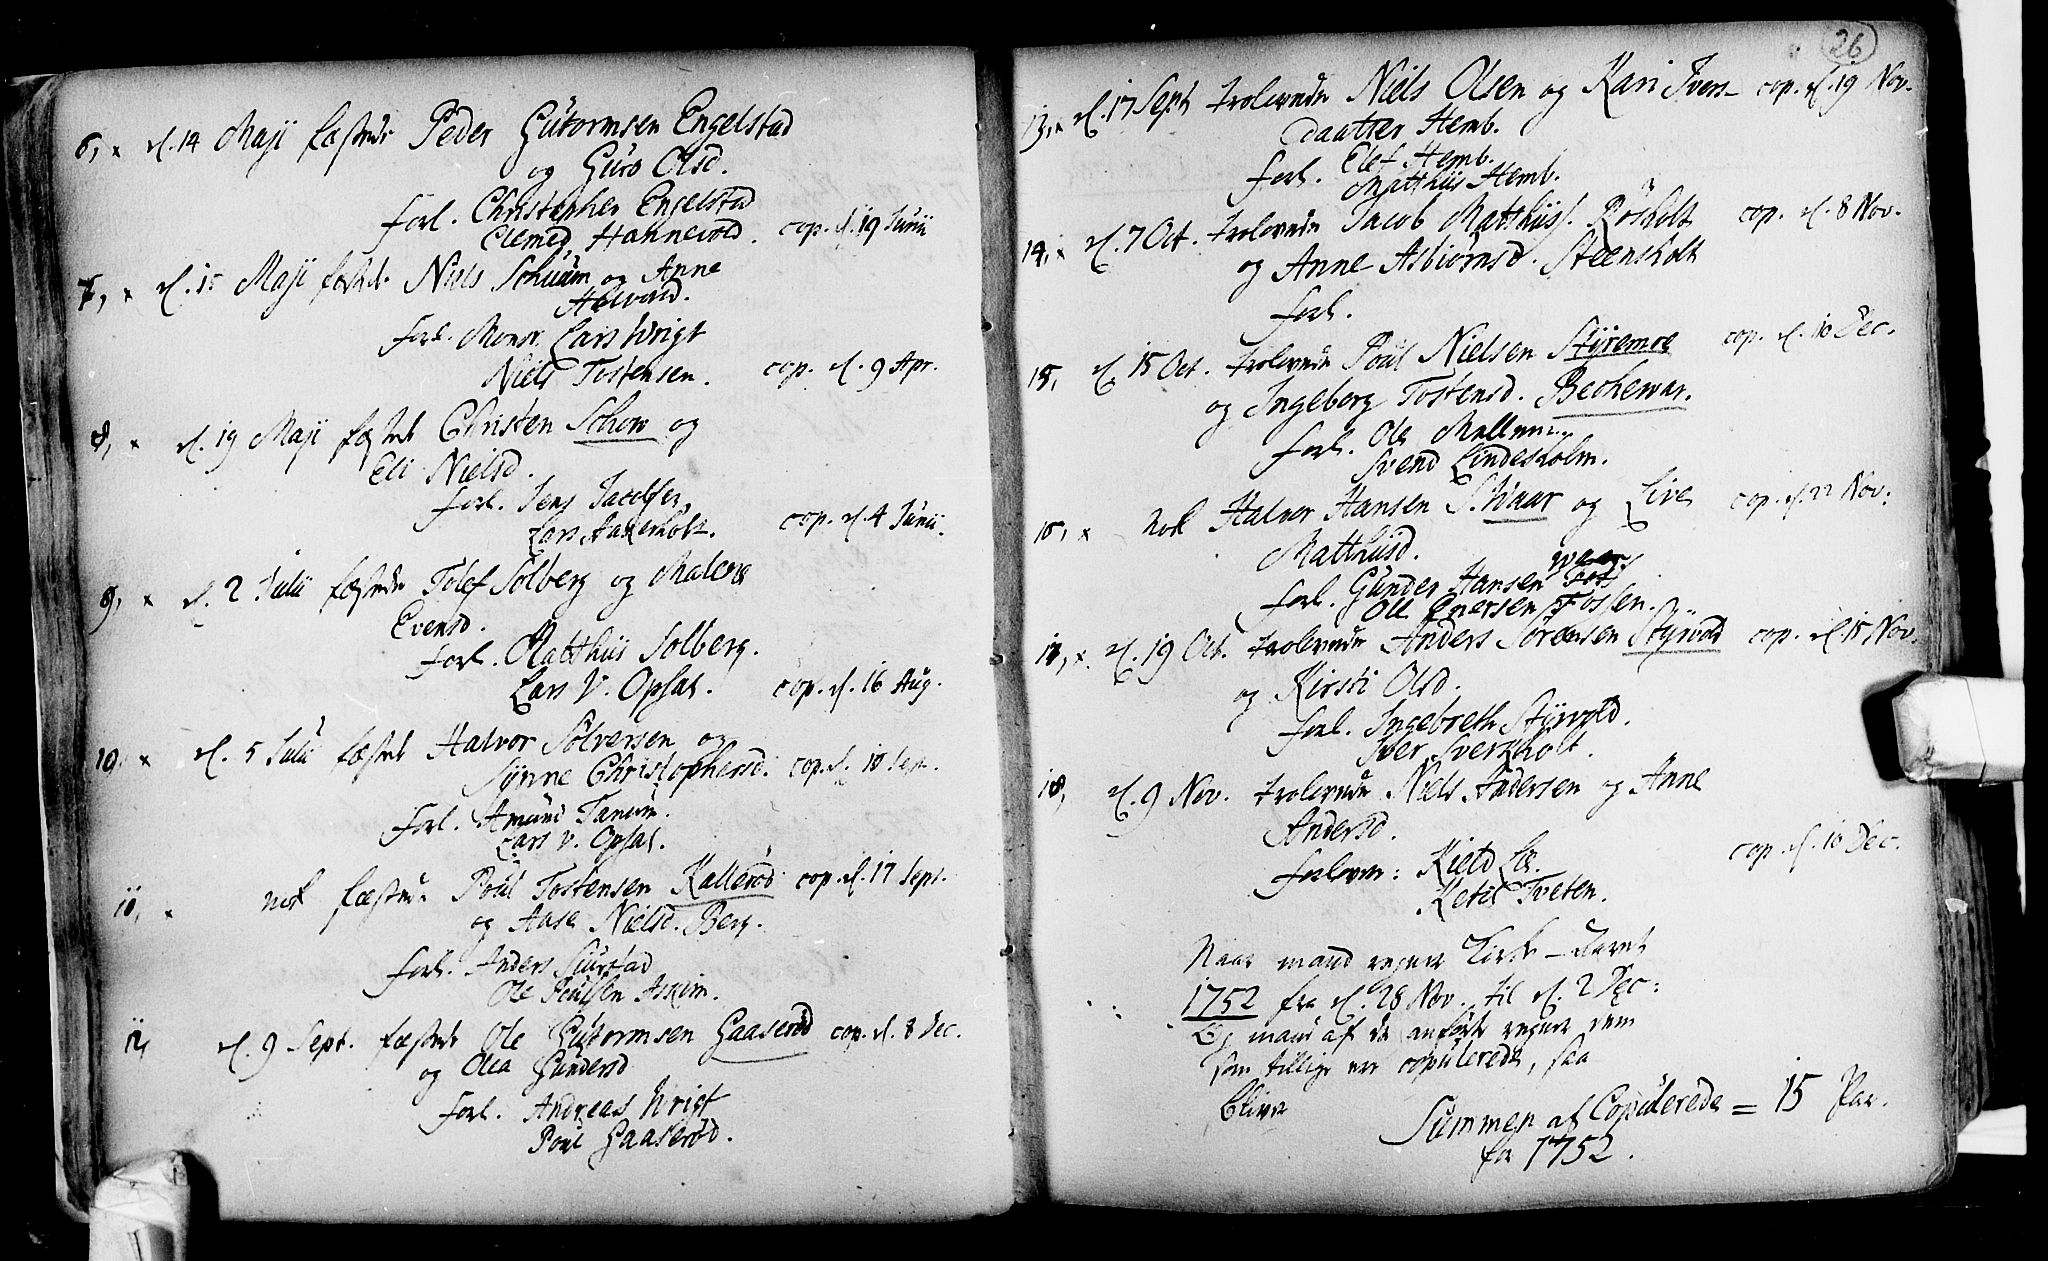 6, x d. 14 Maji fæstede Peder Gutormsen Engelstad
og Guro Olsd.
forl. Christopher Engelstad
Clemed Hannevold. cop. d. 19 Junii
7, x d. 15 Maji fæstede Niels Schuum og Anne
Halvord.
forl. Monsr. Lars Wrigt
Niels Tostensen. cop. d. 9 Apr.
8, x d. 19 Maji fæstede Christen Schow og
Eli Nielsd.
forl. Jens Jacobsen
Lars Aakerholt. cop. d. 4 Junii.
9, x d. 2 Julii fæstede Tolef Solberg og Malene
Evensd.
forl. Matthiis Solberg.
Lars V. Opsal. cop. d. 16 Aug.
10, x d. 5 Julii fæstede Halvor Solversen og
Synne Christophersd. cop. d. 10 Sept.
forl. Amund Tanum.
Lars V. Opsal.
11, x nok fæstede Poul Tostensen Kallerød cop. d. 17 Sept.
og Aase Nielsd. Berg.
forl. Anders Suurstad
Ole Poulsen Askim.
12, d. 9 Sept. fæstede Ole Gutormsen Gaaserød cop. d. 8 Dec.
og Olea Gundersd
forl. Andreas Wrigt
Poul Gaaserød.
26
13, x d. 17 Sept trolovede Niels Olsen og Kari Ivers- cop. d. 19 Nov.
daatter Hemb.
forl. Elef Hemb.
Matthiis Hemb.
14, x d. 7 Oct. trolovede Jacob Matthiis. Røsholt cop. d. 8 Nov.
og Anne Asbiørnsd. Steensholt
forl.
15, d. 15 Oct. trolovede Poul Nielsen Styremoe cop. d. 10 Dec.
og Ingeborg Tostensd. Bechewar.
forl. Ole
Svend Lindesholm.
16, x nok Halvor Hansen Swaar og Live cop. d. 22 Nov.
Matthiisd.
forl. Gunder Hansen
Ole Enersen Fossen.
17, x d. 19 Oct. trolovede Anders Sørensen Styrvold cop. d. 15 Nov.
og Kirsti Olsd.
forl. Ingebreth Styrvold.
Iver Sverkholt.
18, d. 9 Nov. trolovede Niels Andersen og Anne
Andersd.
forlover: Kield Lie. cop. d. 10 Dec.
Ketil Tveten.
Naar mand regner Kirke-Aaret
1752 fra d. 28 Nov. til d. 2 Dec:
Og mand af de anførte regner dem
som tillige ere copulerede, saa
bliver
Summen af Copulerede = 15 Par.
for 1752.